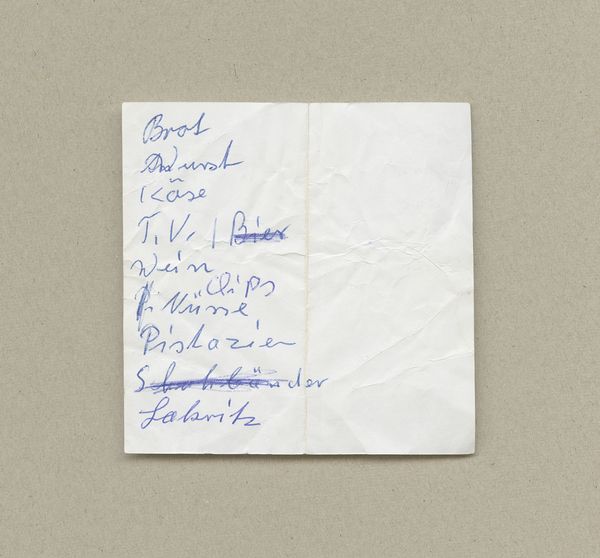 Brot
Wurst
Käse
T.V. / Bier
Wein
Clips
P. Nüsse
Pistazien
Schuhbänder
Lakritz